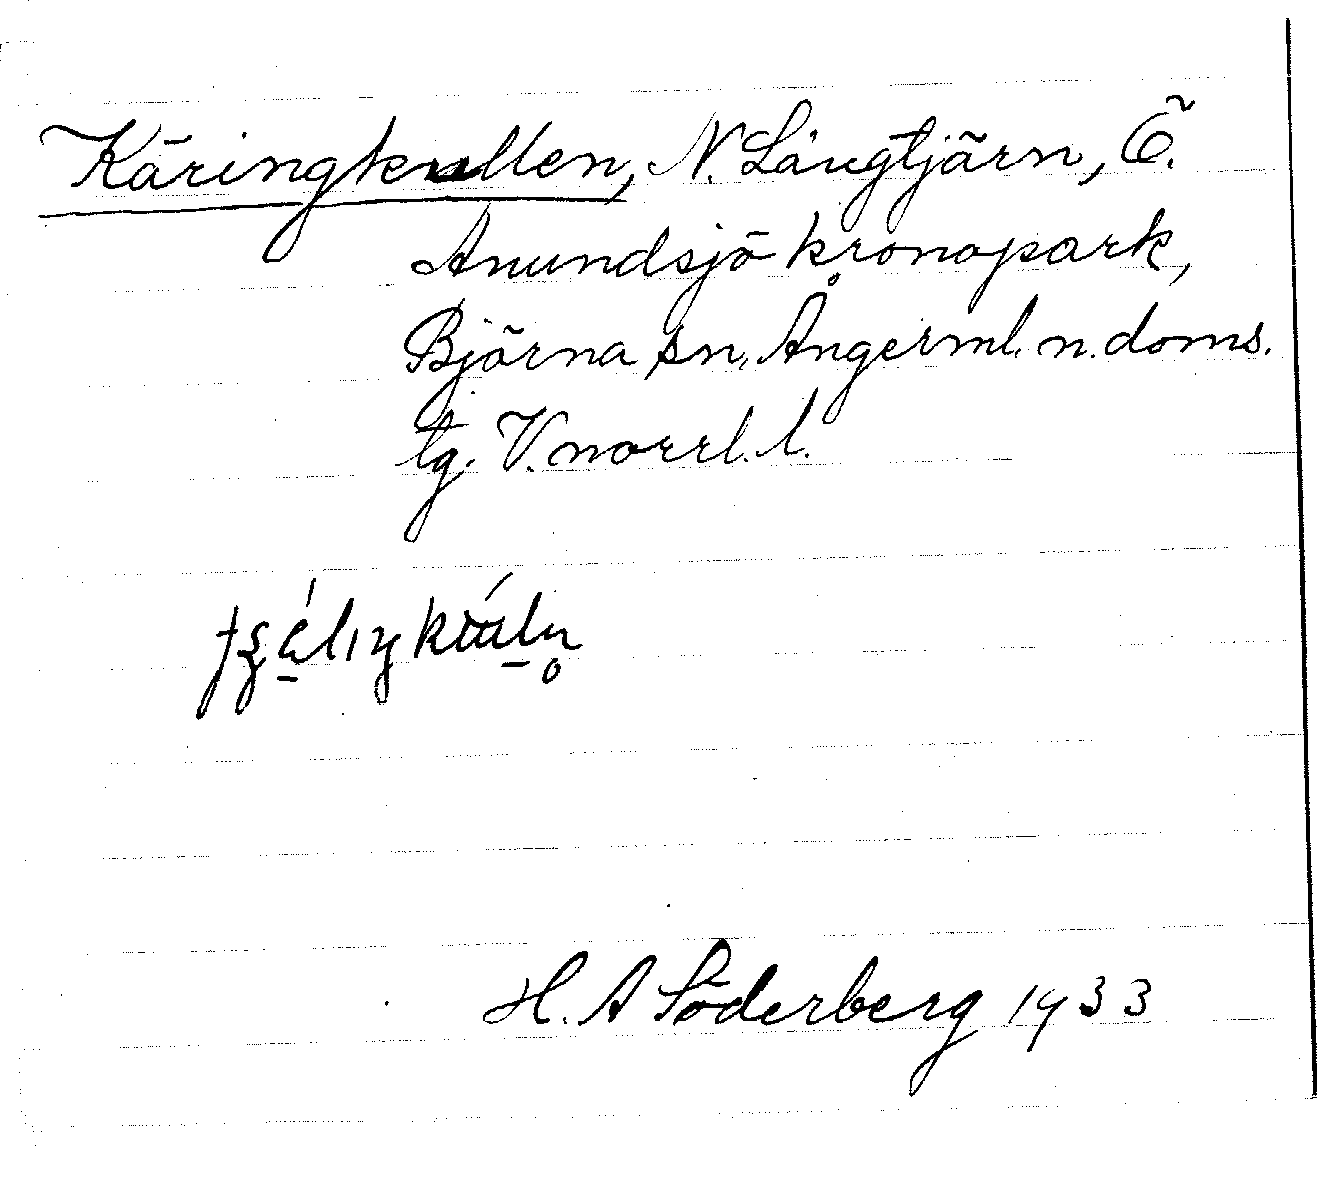 Käringkullen, N. Långtjärn, Ö.
Anundsjö kronopark,
Björna sn, Ångerml. n. doms.
tg. V.norrl. l.
H. A Söderberg 1933